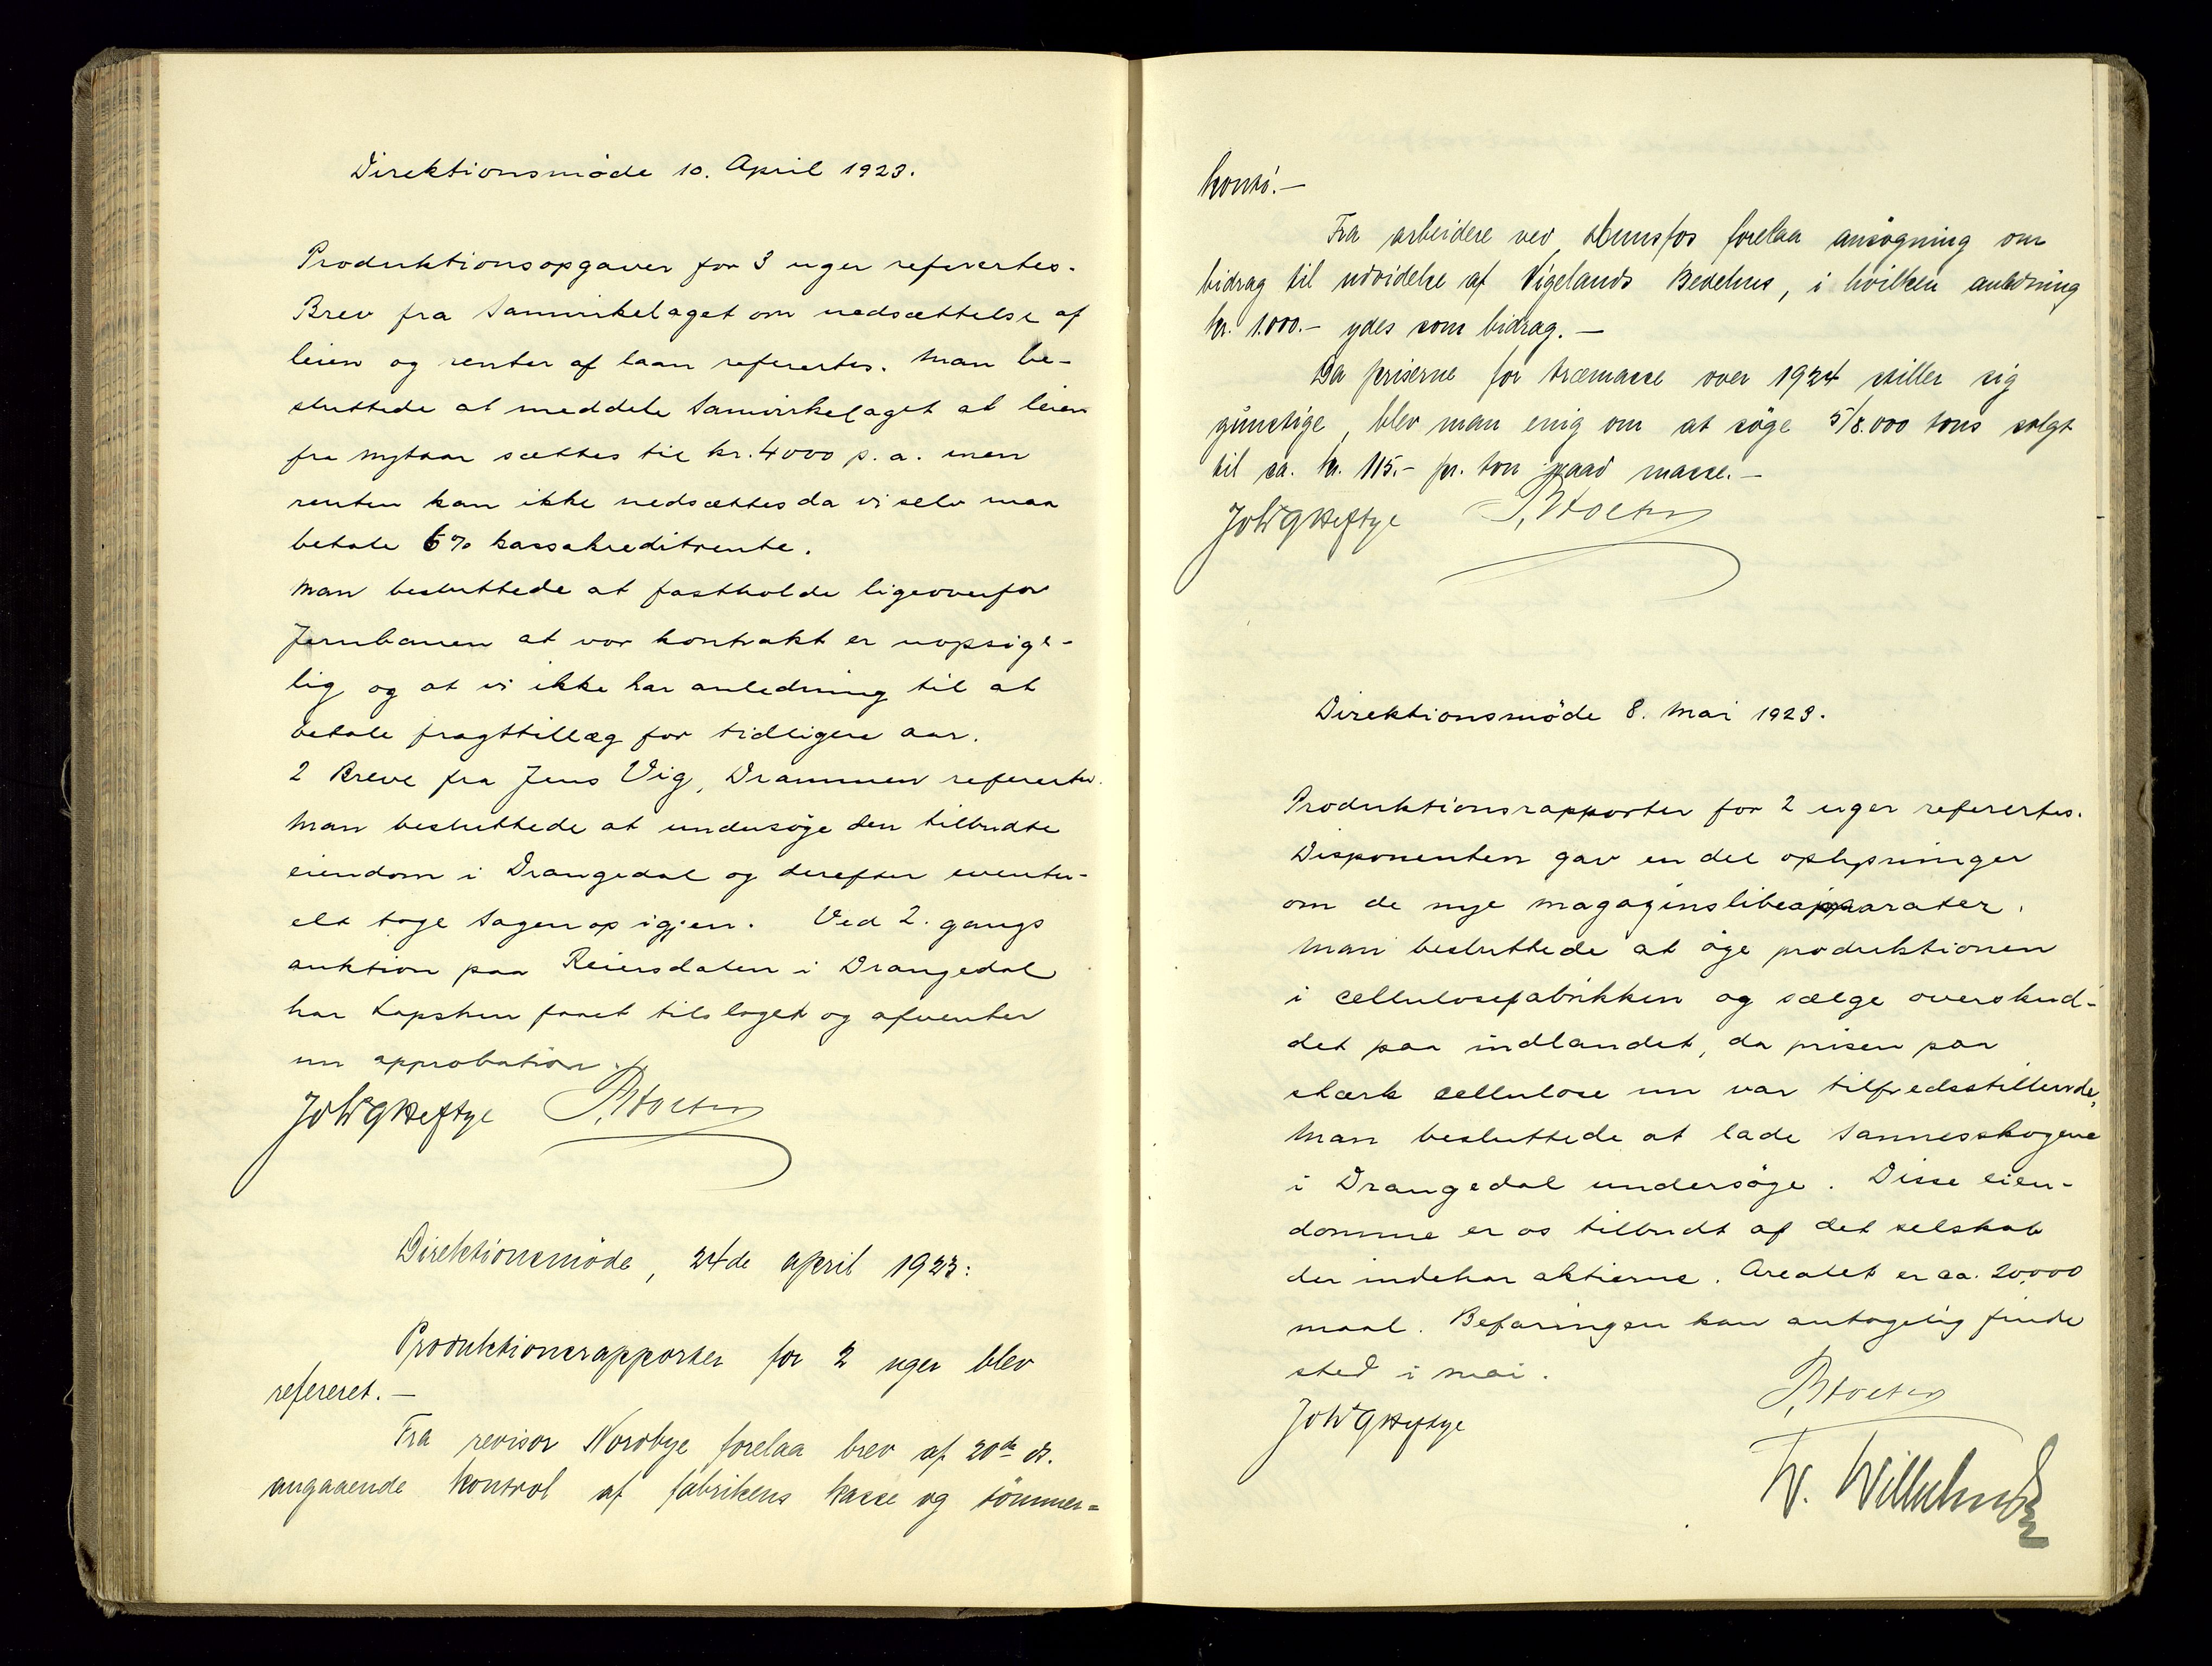 Direktionsmöde 10. April 1923.
Produktionsopgaver for 3 uger refertes.
Brev fra Samvirkelaget om nedsættelse af
leien og renter af laan refertes. Man be-
sluttede at meddele Samvirkelaget at leien
fra nytaar sættes til kr. 4000 p. a. men
renten kan ikke nedsættes da vi selv maa
betale 6% kassakreditrente.
Man besluttede at fastholde ligeoverfor
Jernbanen at vor kontrakt er uopsige-
lig og at vi ikke har anledning til at
betale fragttillæg for tidligere aar.
2 Breve fra Jens Vig, Drammen refertes.
Man besluttede at undersøge den tilbudte
eiendom i Drangedal og derefter eventu-
elt tage sagen op igjen. Ved 2. gangs
auktion paa Reiersdalen i Drangedal
har Lapsken faaet tilslaget og afventer
nu approbation.
Joh G Heftye
Direktionsmöde, 24de april 1923:
Produktionsrapporter for 2 uger blev
refereret. —
Fra revisor Nordbye forelaa brev af 20de ds.
angaaende kontrol af fabrikens kasse og tömmer=
konto. —
Fra arbeidere ved Hunsfos forelaa ansögning om
bidrag til udvidelse af Vigelands Bedehus, i hvilken anledning
kr. 1.000.- ydes som bidrag. —
Da priserne for træmasse over 1924 stiller sig
günstige, blev man enig om at söge 5/8.000 tons solgt
til ca. kr. 115.- pr. ton vaad masse. —
Joh G Heftye
Direktionsmöde 8. Mai 1923.
Produktionsrapporter for 2 uger refertes.
Disponenten gav en del oplysninger
om de nye magazinslibeapparater.
Man besluttede at öge produktionen
i cellulosefabrikken og sælge overskud-
det paa indlandet, da prisen paa
stærk cellulose nu var tilfredsstillende,
Man besluttede at lade Sannesskogene
i Drangedal undersöge. Disse eien-
domme er os tilbudt af det selskab
der indehar aktierne. Arealet er ca. 20,000
maal. Befaringen kan antagelig finde
sted i mai.
Joh G Heftye
W. Wilhelmsen